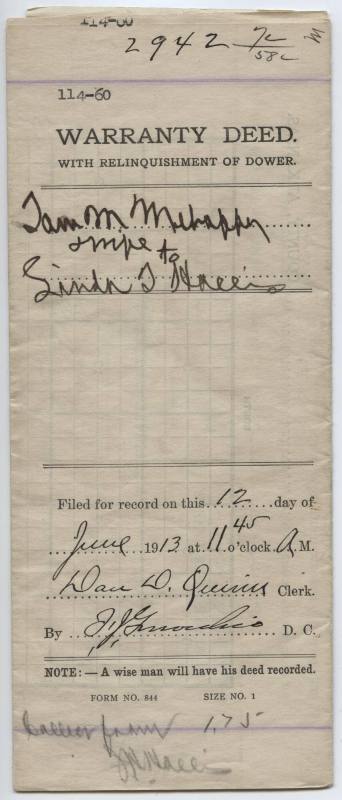 114-60
2942 7c
58c
114-60
WARRANTY DEED.
WITH RELINQUISHMENT OF DOWER.
Sam M.
& wife to
Linda T Harris
Filed for record on this 12 day of
June 1913 at 11 45 o'clock A. M.
Dan D. Quinn Clerk.
By D. C.
NOTE:— A wise man will have his deed recorded.
FORM NO. 844 SIZE NO. 1
from 1.75
Harris